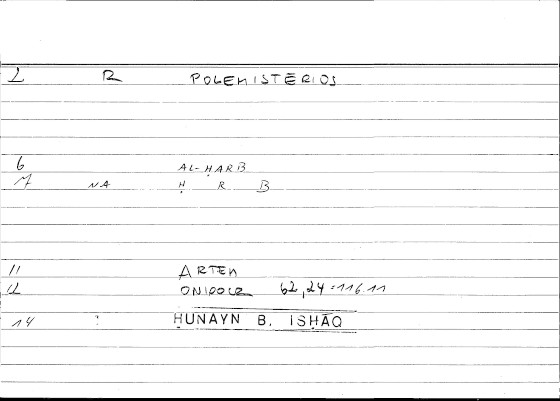 2 R POLEMISTĒRIOS
6 AL-ḤARB
7 NA Ḥ R B
11 ARTEM
12 ONIDOCR 62,24=116.11
14 : ḤUNAYN B. ISḤĀQ